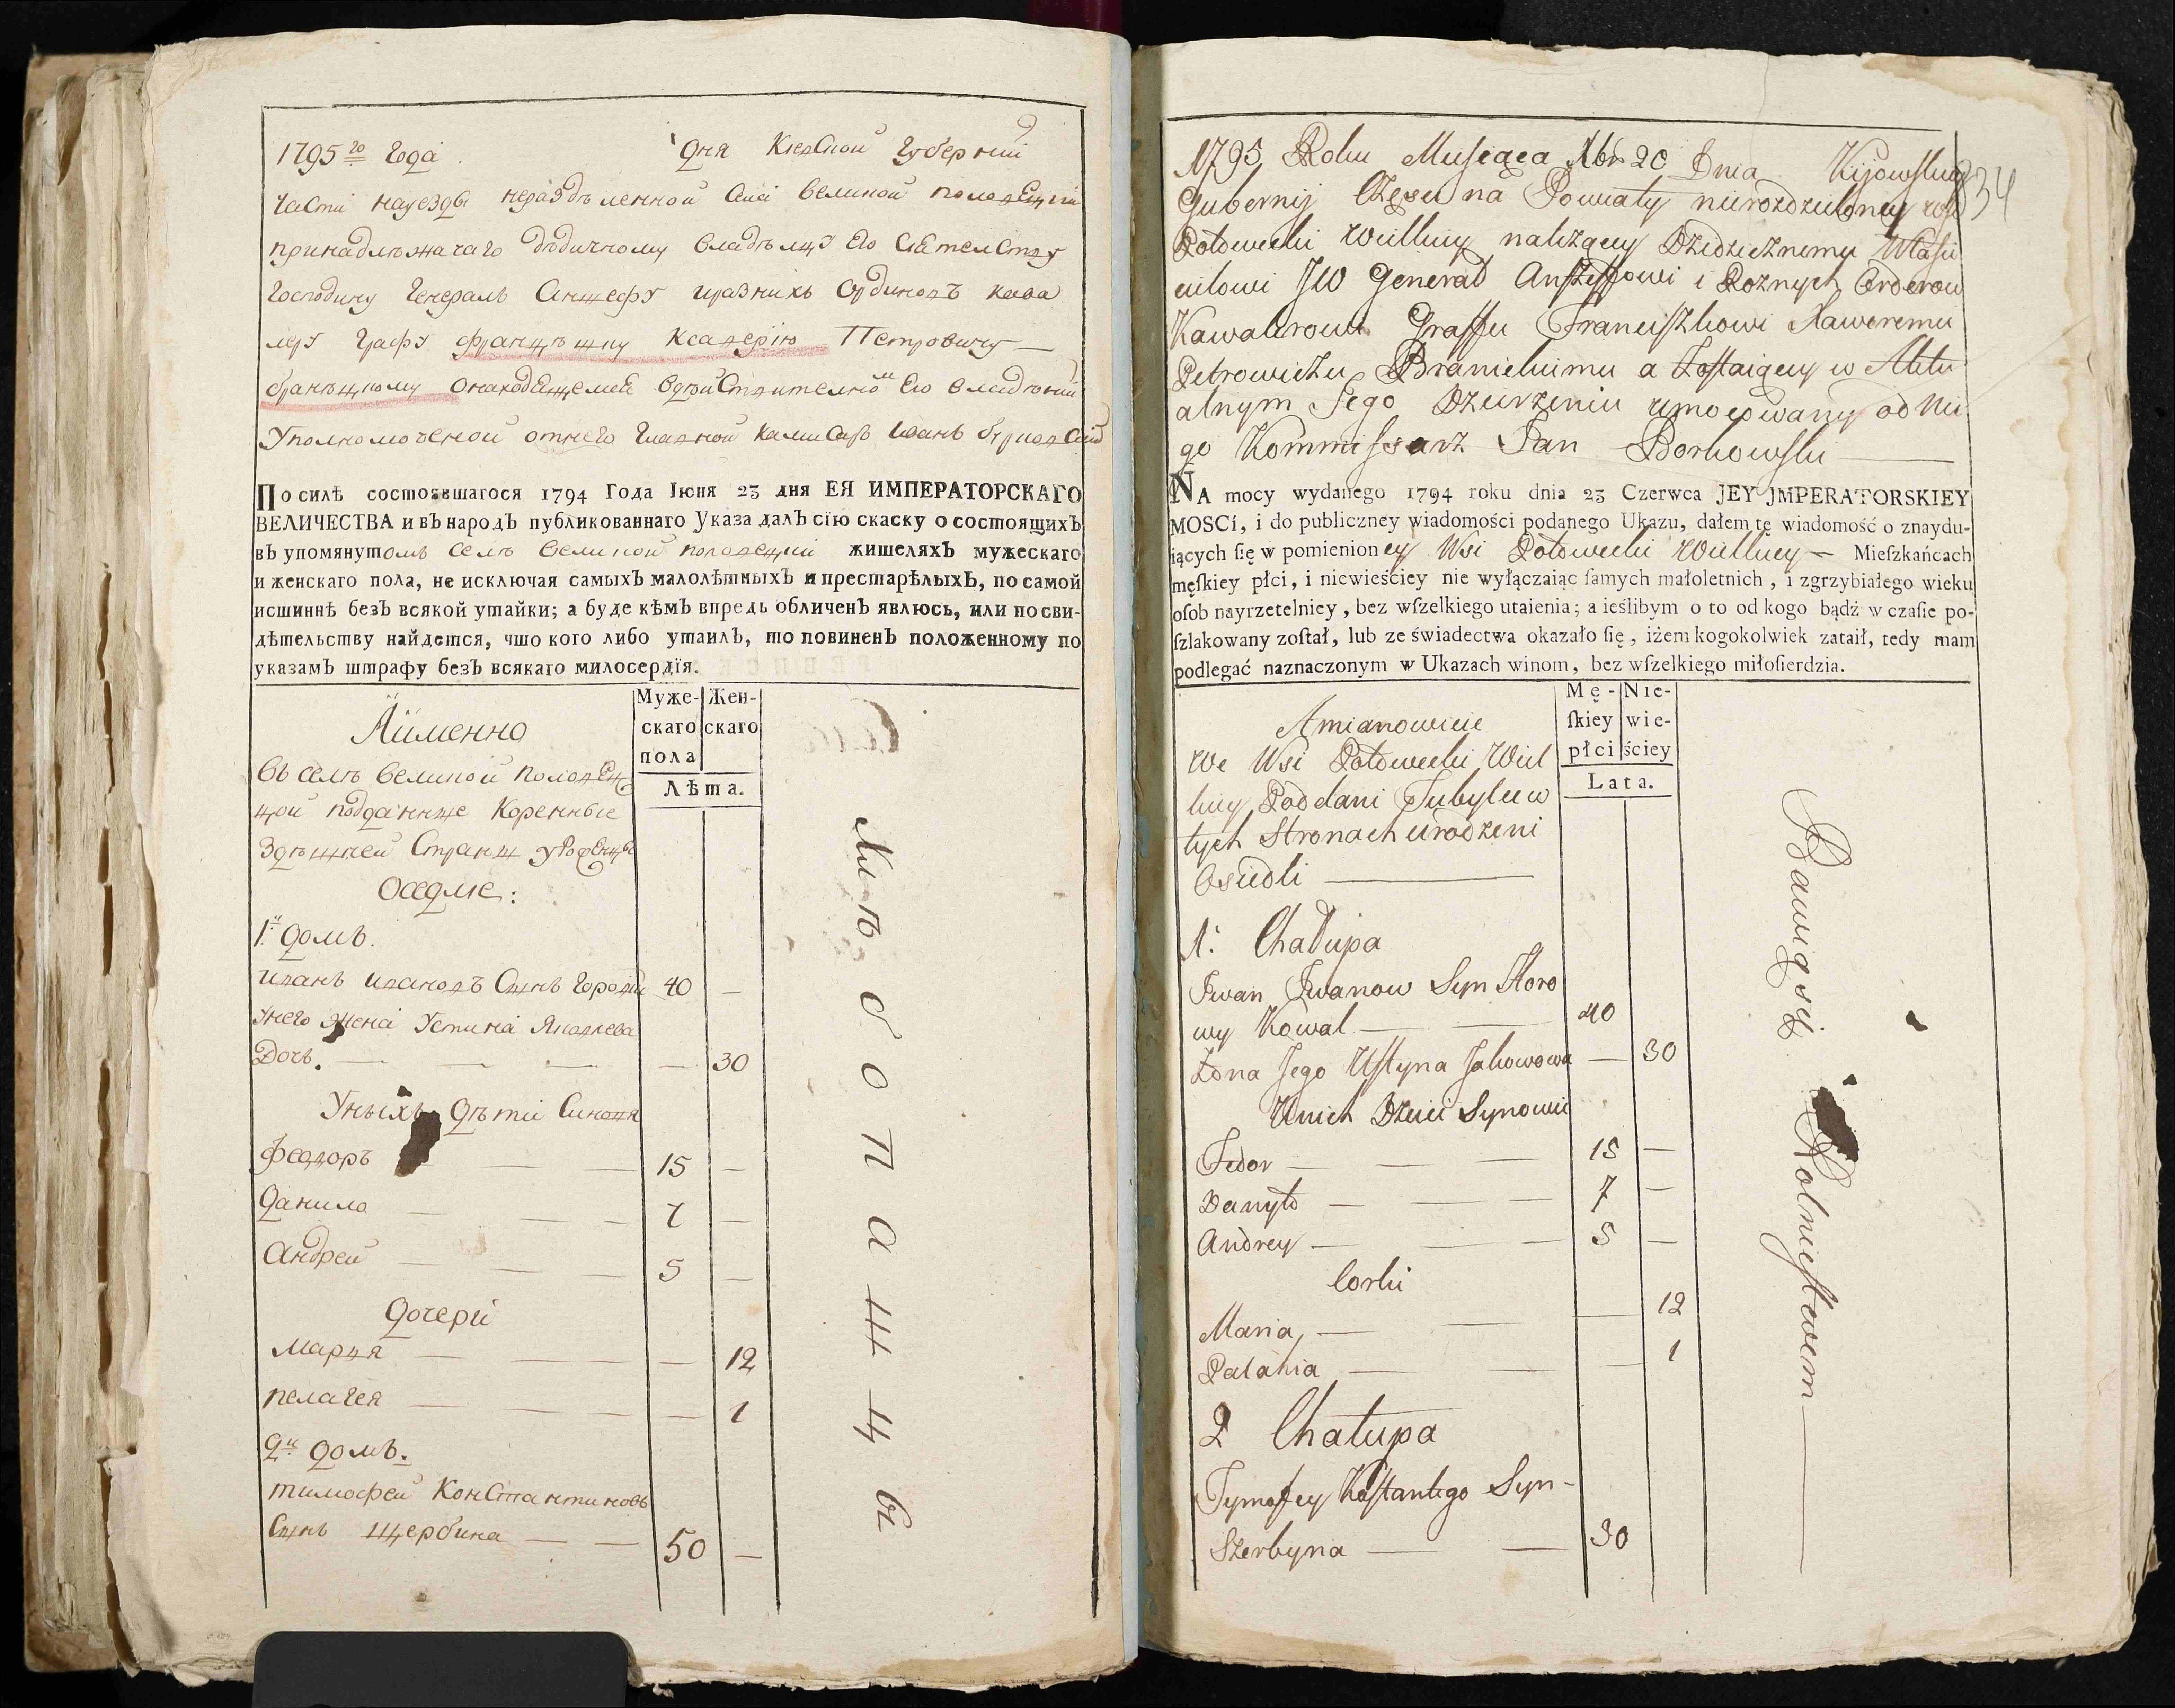 1795го Года дня Киевской Губернии
части науезды нераздѣленной села великой половецкой
принадлѣжачаго дѣдичному владѣлцу Его Сиятелству
Господину Генералъ Аншефу иразнихъ Ординовъ кава
леру Графу францѣшку Ксаверiю Петровичу —
бранѣцкому онаходящемся вдѣйствителномъ Его владѣнии
Уполномоченой отнего Главной камисаръ Иванъ
По силѣ состоявшагося 1794 Года Іюня 23 дня ЕЯ ИМПЕРАТОРСКАГО
ВЕЛИЧЕСТВА и въ народъ публикованнаго Указа далъ сію скаску о состоящихъ
въ упомянутомъ селѣ великой половецкой жителяхъ мужескаго
и женскаго пола, не исключая самыхъ малолѣтныхъ и престарѣлыхъ, по самой
истиннѣ безъ всякой утайки; а буде кѣмъ впредь обличенъ явлюсь, или по сви-
дѣтельству найдется, что кого либо утаилъ, то повиненъ положенному по
указамъ штрафу безъ всякаго милосердїя.
Муже- Жен-
скаго скаго
пола
Лѣта.
Аїименно
въ селѣ великой половец
кой подданные Коренные
здѣшней Страны урожденцы
Оседлые:
1й домъ.
иванъ ивановъ Сынъ 40 —
Унего Жена Устина Яковлева
Дочь. — — — — 30
Унихъ дѣти Синовя
феодоръ — — — 15 —
данило — — — 7 —
Андрей — — — 5 —
дочери
Марья — — — — 12
пелагея — — — — 1
2й домъ.
тимофей Константиновъ
Сынъ щербина — — 50 —
Хлѣбопашцы
1795 Roku Miesiąca Xbr 20 Dnia Kijowskiey
Gubernij Części na Powiaty nierozdzieloney wsi
Połowecki Wielkiey należącey Dziedzicznemu Właści
cielowi JW Generał Anszeffowi i Rożnych Orderow
Kawalerowi Graffu Franciszkowi Xaweremu
Petrowiczu Branickiemu a Zostaiącey w Aktu
alnym Jego Dzierżeniu umocowany od Nie
go Kommissarz Pan Borkowski —
834
NA mocy wydanego 1794 roku dnia 23 Czerwca JEY JMPERATORSKIEY
MOSCí, i do publiczney wiadomości podanego Ukazu, dałem tę wiadomość o znaydu-
iących ſię w pomienioney Wsi Połowecki Wielkiey — Mieſzkańcach
męſkiey płci, i niewieściey nie wyłączaiąc ſamych małoletnich, i zgrzybiałego wieku
oſob nayrzetelniey, bez wſzelkiego utaienia; a ieślibym o to od kogo bądź w czaſie po-
ſzlakowany zoſtał, lub ze świadectwa okazało ſię, iżem kogokolwiek zataił, tedy mam
podlegać naznaczonym w Ukazach winom, bez wſzelkiego miłoſierdzia.
Mę- Nie-
ſkiey wie-
płci ściey
Lata.
Amianowicie
We Wsi Połowecki Wiel
kiey Poddani Tubylcu w
tych Stronach urodzeni
Osiedli —
1. Chałupa
Jwan Jwanow Syn Horo
wy Kowal — — 40
Żona Jego Ustyna Jakowowa — 30
Unich Dzieci Synowie
Fedor — — — 15 —
Danyło — — — 7 —
Andrey — — — 5 —
Corki
Maria — — — 12
Palahia — — 1
2 Chałupa
Tymofey Kostantego Syn -
Szerbyna — — 30
Bawią się Rolnictwem —